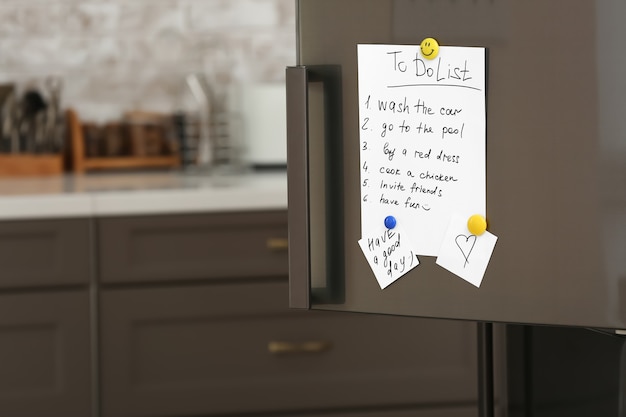 To Do List
1. wash the car
2. go to the pool
3. by a red dress
4. cook a chicken
5. invite friends
6. have fun
HAVE
a good
day:)